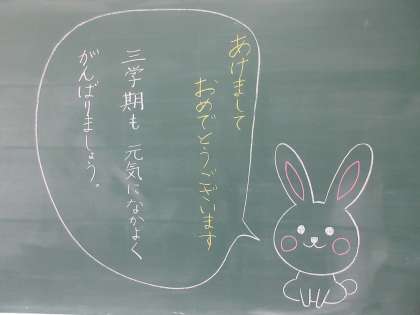 あけまして
おめでとうございます
三学期も 元気になかよく
がんばりましょう。